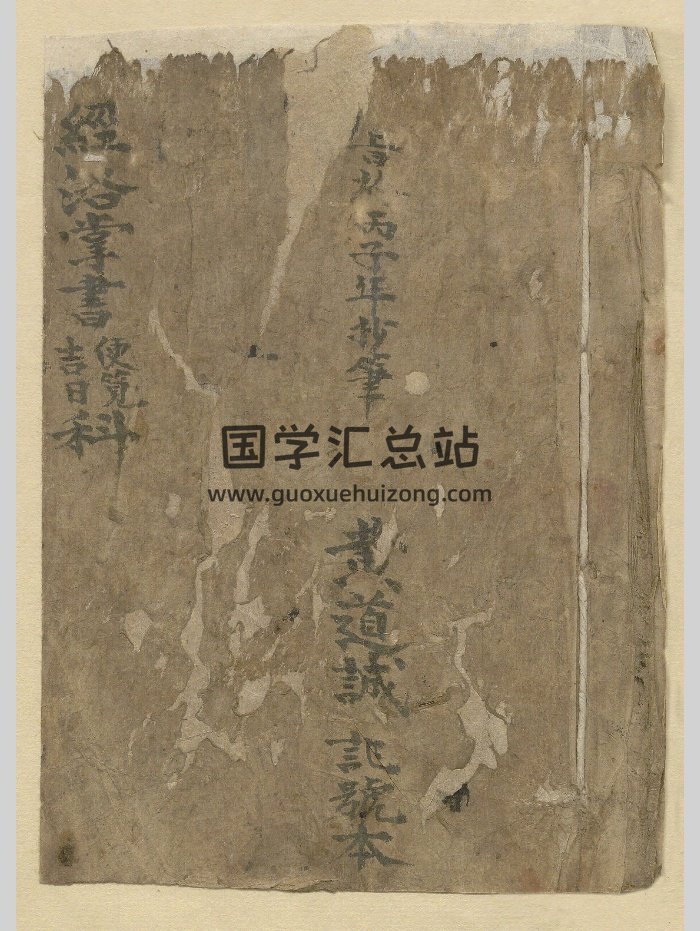 旹 丙子年抄筆
黄道誠 記號本
經浴掌書
便覽
吉日
科
国学汇总站
www.guoxuehuizong.com